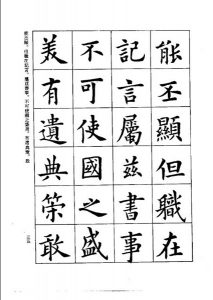 能丕顯但職在
記言屬茲書事
不可使國之盛
美有遺典策敢
能丕顯，但職在記言，屬茲書事，不可使國之盛美，有遺典策，敢